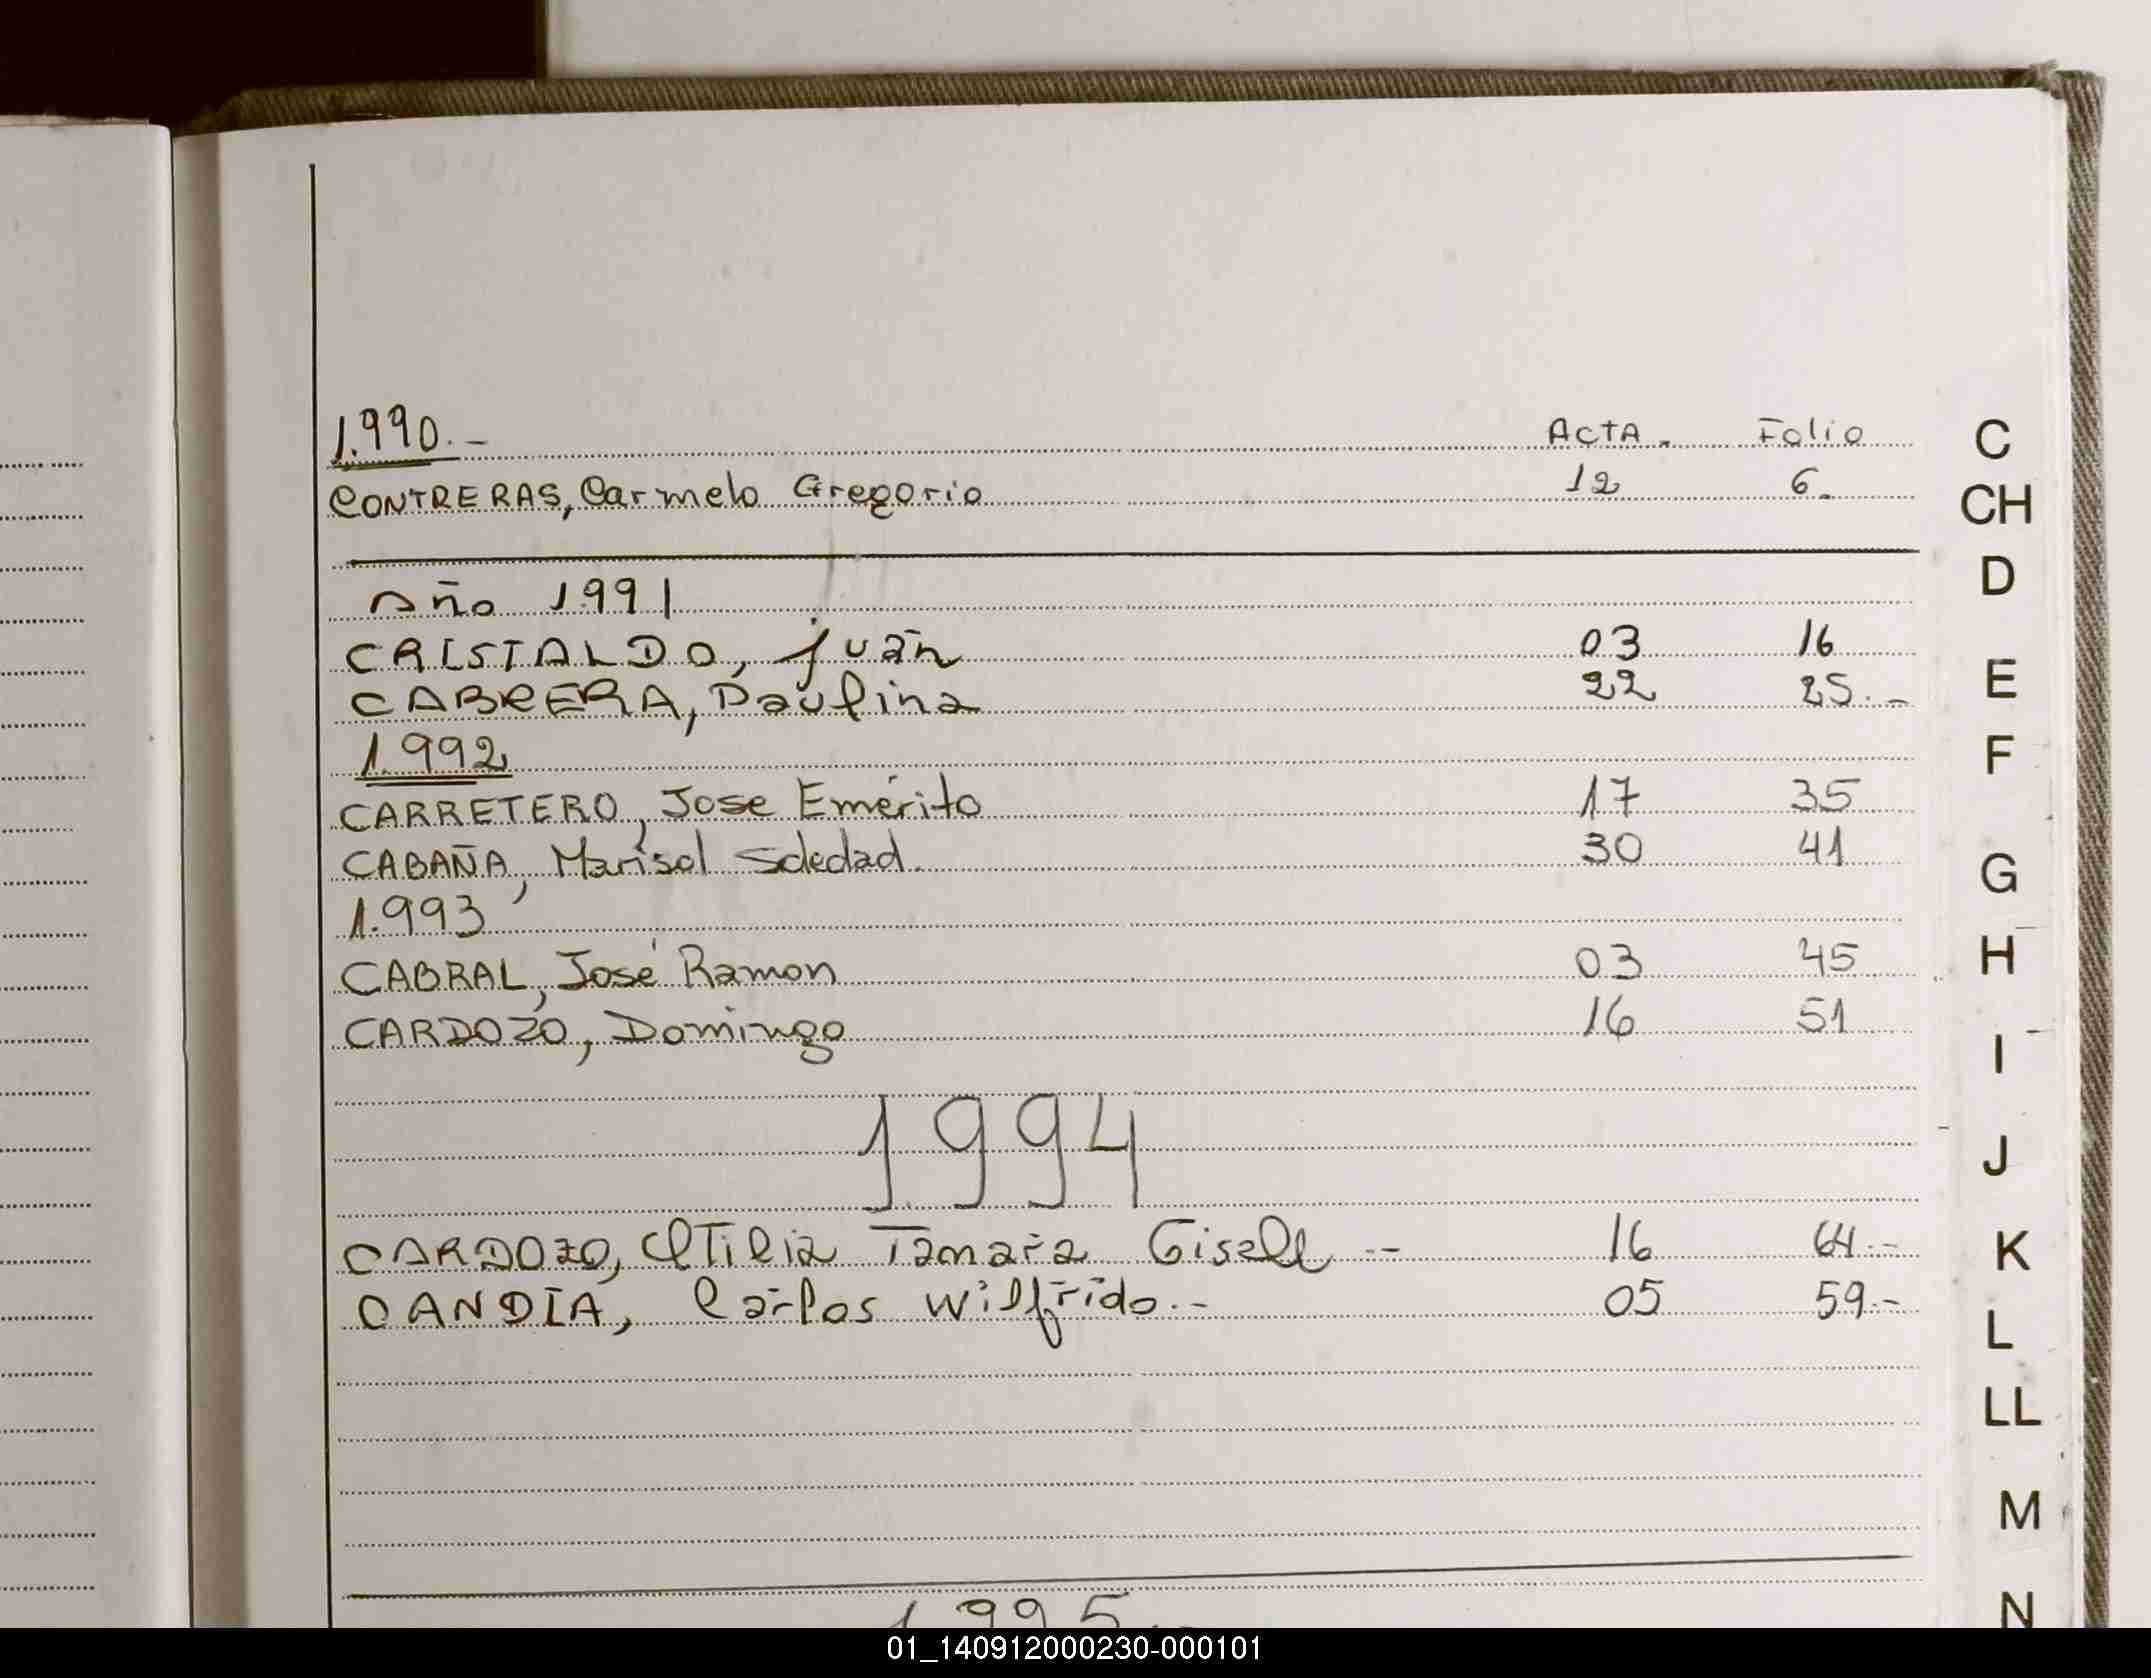 1.990.- ACTA. Folio
CONTRERAS, Carmelo Gregorio 12 6.
Año 1991
CRISTALDO, Juan 03 16
CABRERA, Paulina 22 25.-
1.992
CARRETERO, Jose Emérito 17 35
CABAÑA, Marisol Soledad. 30 41
1.993
CABRAL, José Ramon 03 45
CARDOZO, Domingo 16 51
1994
CARDOZO, Tamara Gisell -- 16 64.-
CANDIA, Carlos Wilfrido.- 05 59.-
1995.-
C
CH
D
E
F
G
H
I
J
K
L
LL
M
N
01_140912000230-000101